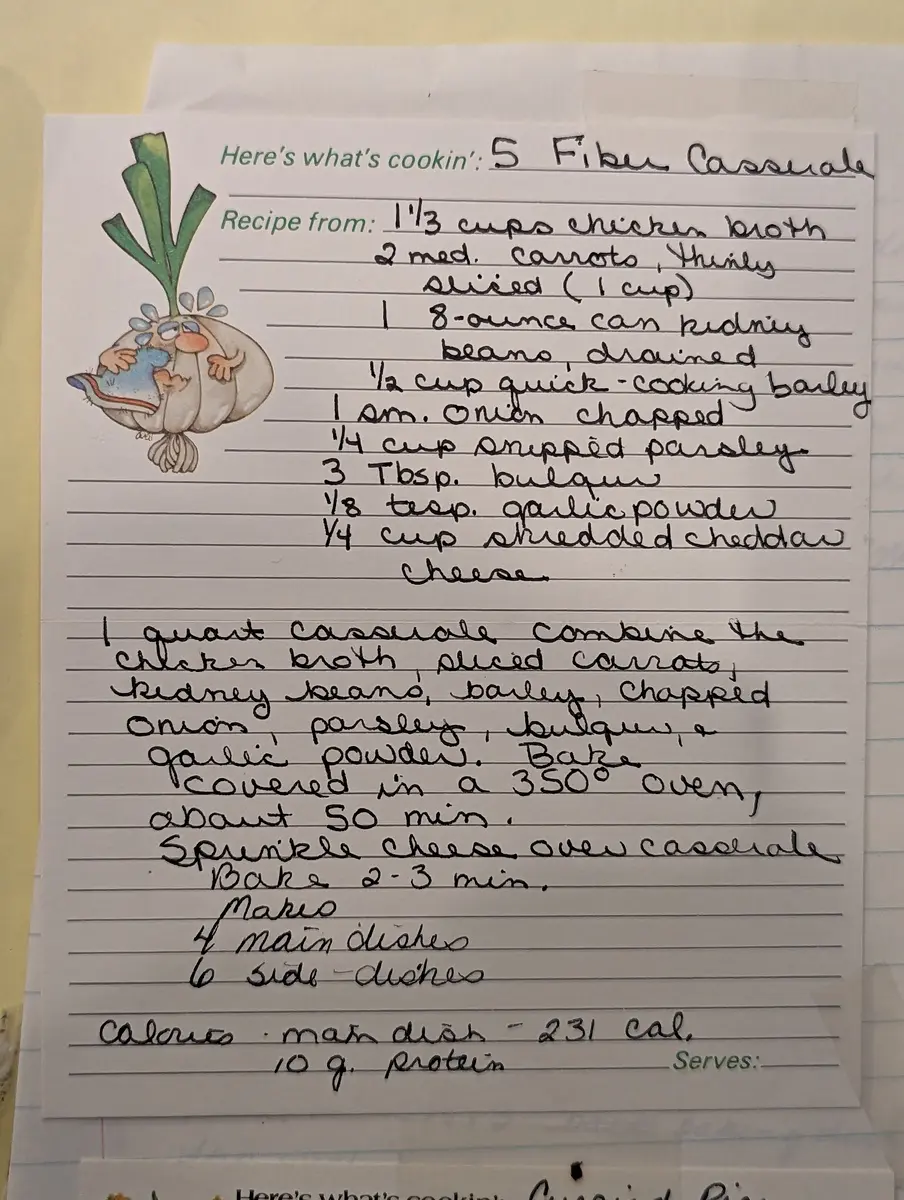 Here's what's cookin': 5 Fiber Casserole
Recipe from: 1 1/3 cups chicken broth
2 med. carrots, thinly
sliced (1 cup)
1 8-ounce can kidney
beans, drained
1/2 cup quick-cooking barley
1 sm. onion chopped
1/4 cup snipped parsley
3 Tbsp. bulgur
1/8 tesp. garlic powder
1/4 cup shredded cheddar
cheese
1 quart casserole combine the
chicken broth, sliced carrots,
kidney beans, barley, chopped
onion, parsley, bulgur, &
garlic powder. Bake
covered in a 350° oven,
about 50 min.
Sprinkle cheese over casserole
Bake 2-3 min.
Makes
4 main dishes
6 side-dishes
Calories - main dish - 231 cal.
10 g. protein
Serves:
Here's what's cookin':